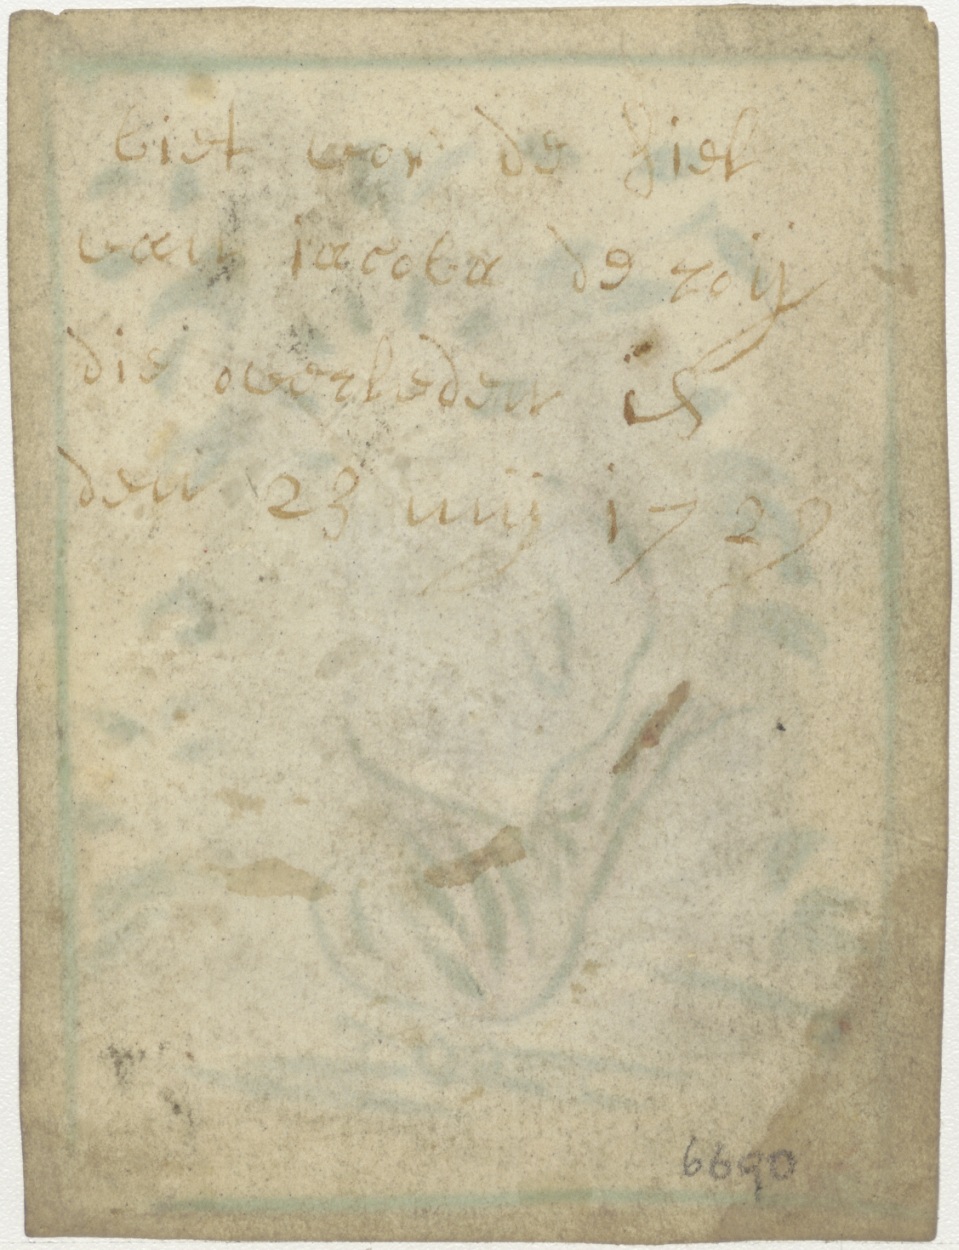 biet voor de ziel
van jacoba de roij
die overleden is
den 23 mij 1729
6690